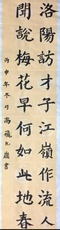 洛陽訪才子江嶺作流人
聞說梅花早何如此地春
丙申年冬月馮
書